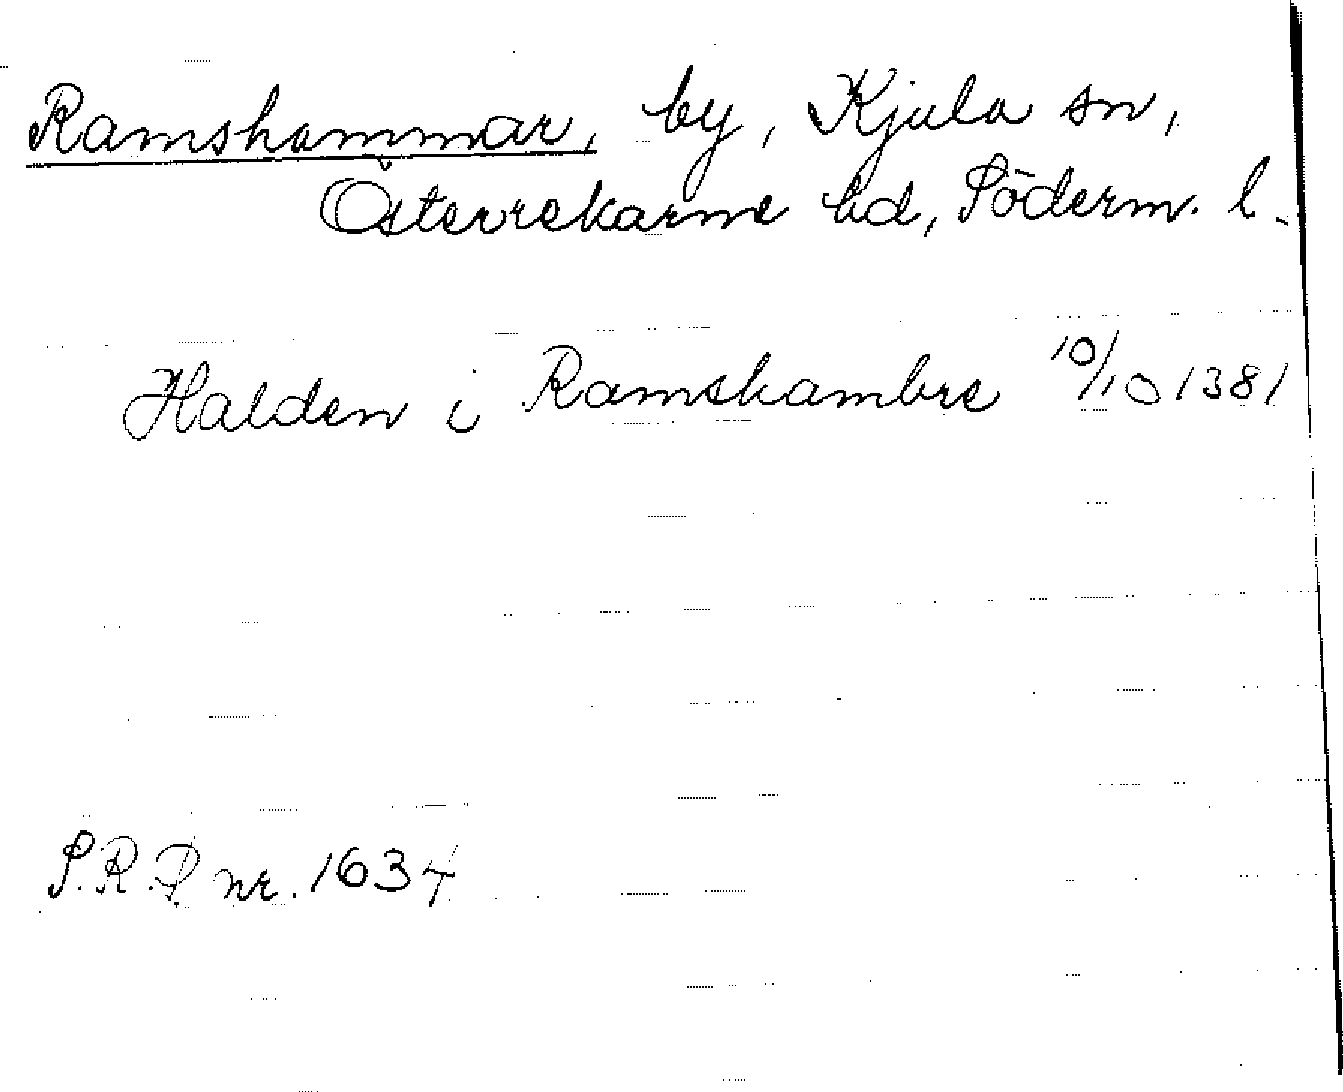 Ramshammar, by, Kjula sn,
Österrekarne hd, Söderm. l.
Halden i Ramshambre 10/10 1381
S.R.P nr. 1634